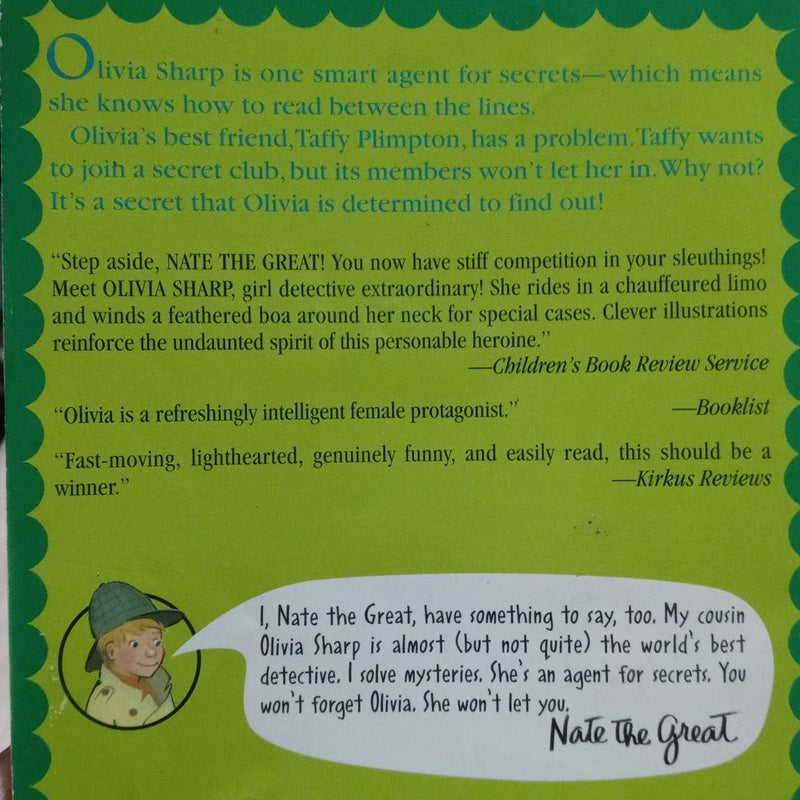 Olivia Sharp is one smart agent for secrets—which means
she knows how to read between the lines.
Olivia's best friend, Taffy Plimpton, has a problem. Taffy wants
to join a secret club, but its members won't let her in. Why not?
It's a secret that Olivia is determined to find out!
“Step aside, NATE THE GREAT! You now have stiff competition in your sleuthings!
Meet OLIVIA SHARP, girl detective extraordinary! She rides in a chauffeured limo
and winds a feathered boa around her neck for special cases. Clever illustrations
reinforce the undaunted spirit of this personable heroine.”
—Children's Book Review Service
“Olivia is a refreshingly intelligent female protagonist.” —Booklist
“Fast-moving, lighthearted, genuinely funny, and easily read, this should be a
winner.” —Kirkus Reviews
I, Nate the Great, have something to say, too. My cousin
Olivia Sharp is almost (but not quite) the world's best
detective. I solve mysteries. She's an agent for secrets. You
won't forget Olivia. She won't let you.
Nate the Great